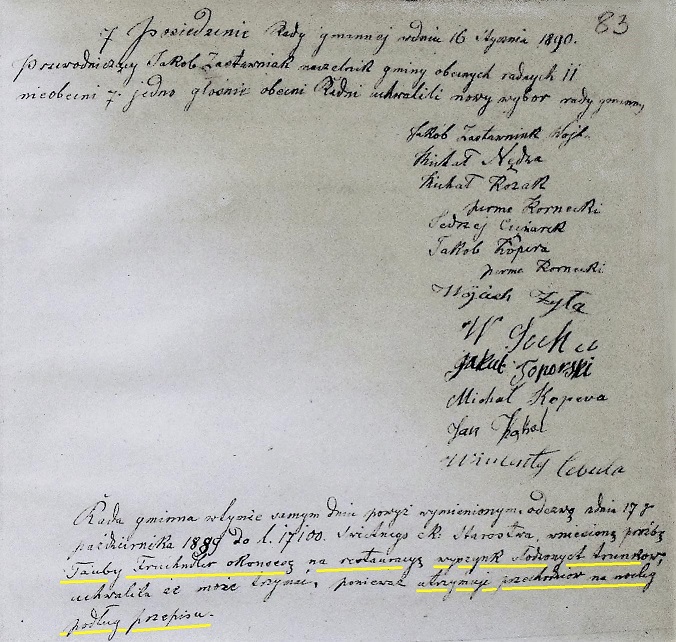 83
7 Posiedzenie Rady gminnej wdniu 16 stycznia 1890.
Przewodniczący Jakob Zastawniak naczelnik gminy obecnych radnych 11
nieobecni 7. jedno głośnie obecni Radni uchwalili nowy wybor rady gminny
Jakób Zastawniak Wojt
Michał Nędza
Michał Kozak
Kornecki
Jędrzej Ciężarek
Jakob Kopera
Kornecki
Wojciech Zyła
W
Jakub Toporski
Michał Kopera
Jan Kękol
Wincenty Cebula
Rada gminna wtymże samym dniu powyż wymienionym, odezwą zdnia 17 g
października 1889 do l. 17100. Swietnego ck. Starostwa, wniesioną prośbę
Tauby na restauracyę wyszynk słodzonych trunków,
uchwaliła że może trzymać, ponieważ utrzymuje przechodniow na nocleg
podług przepisu.